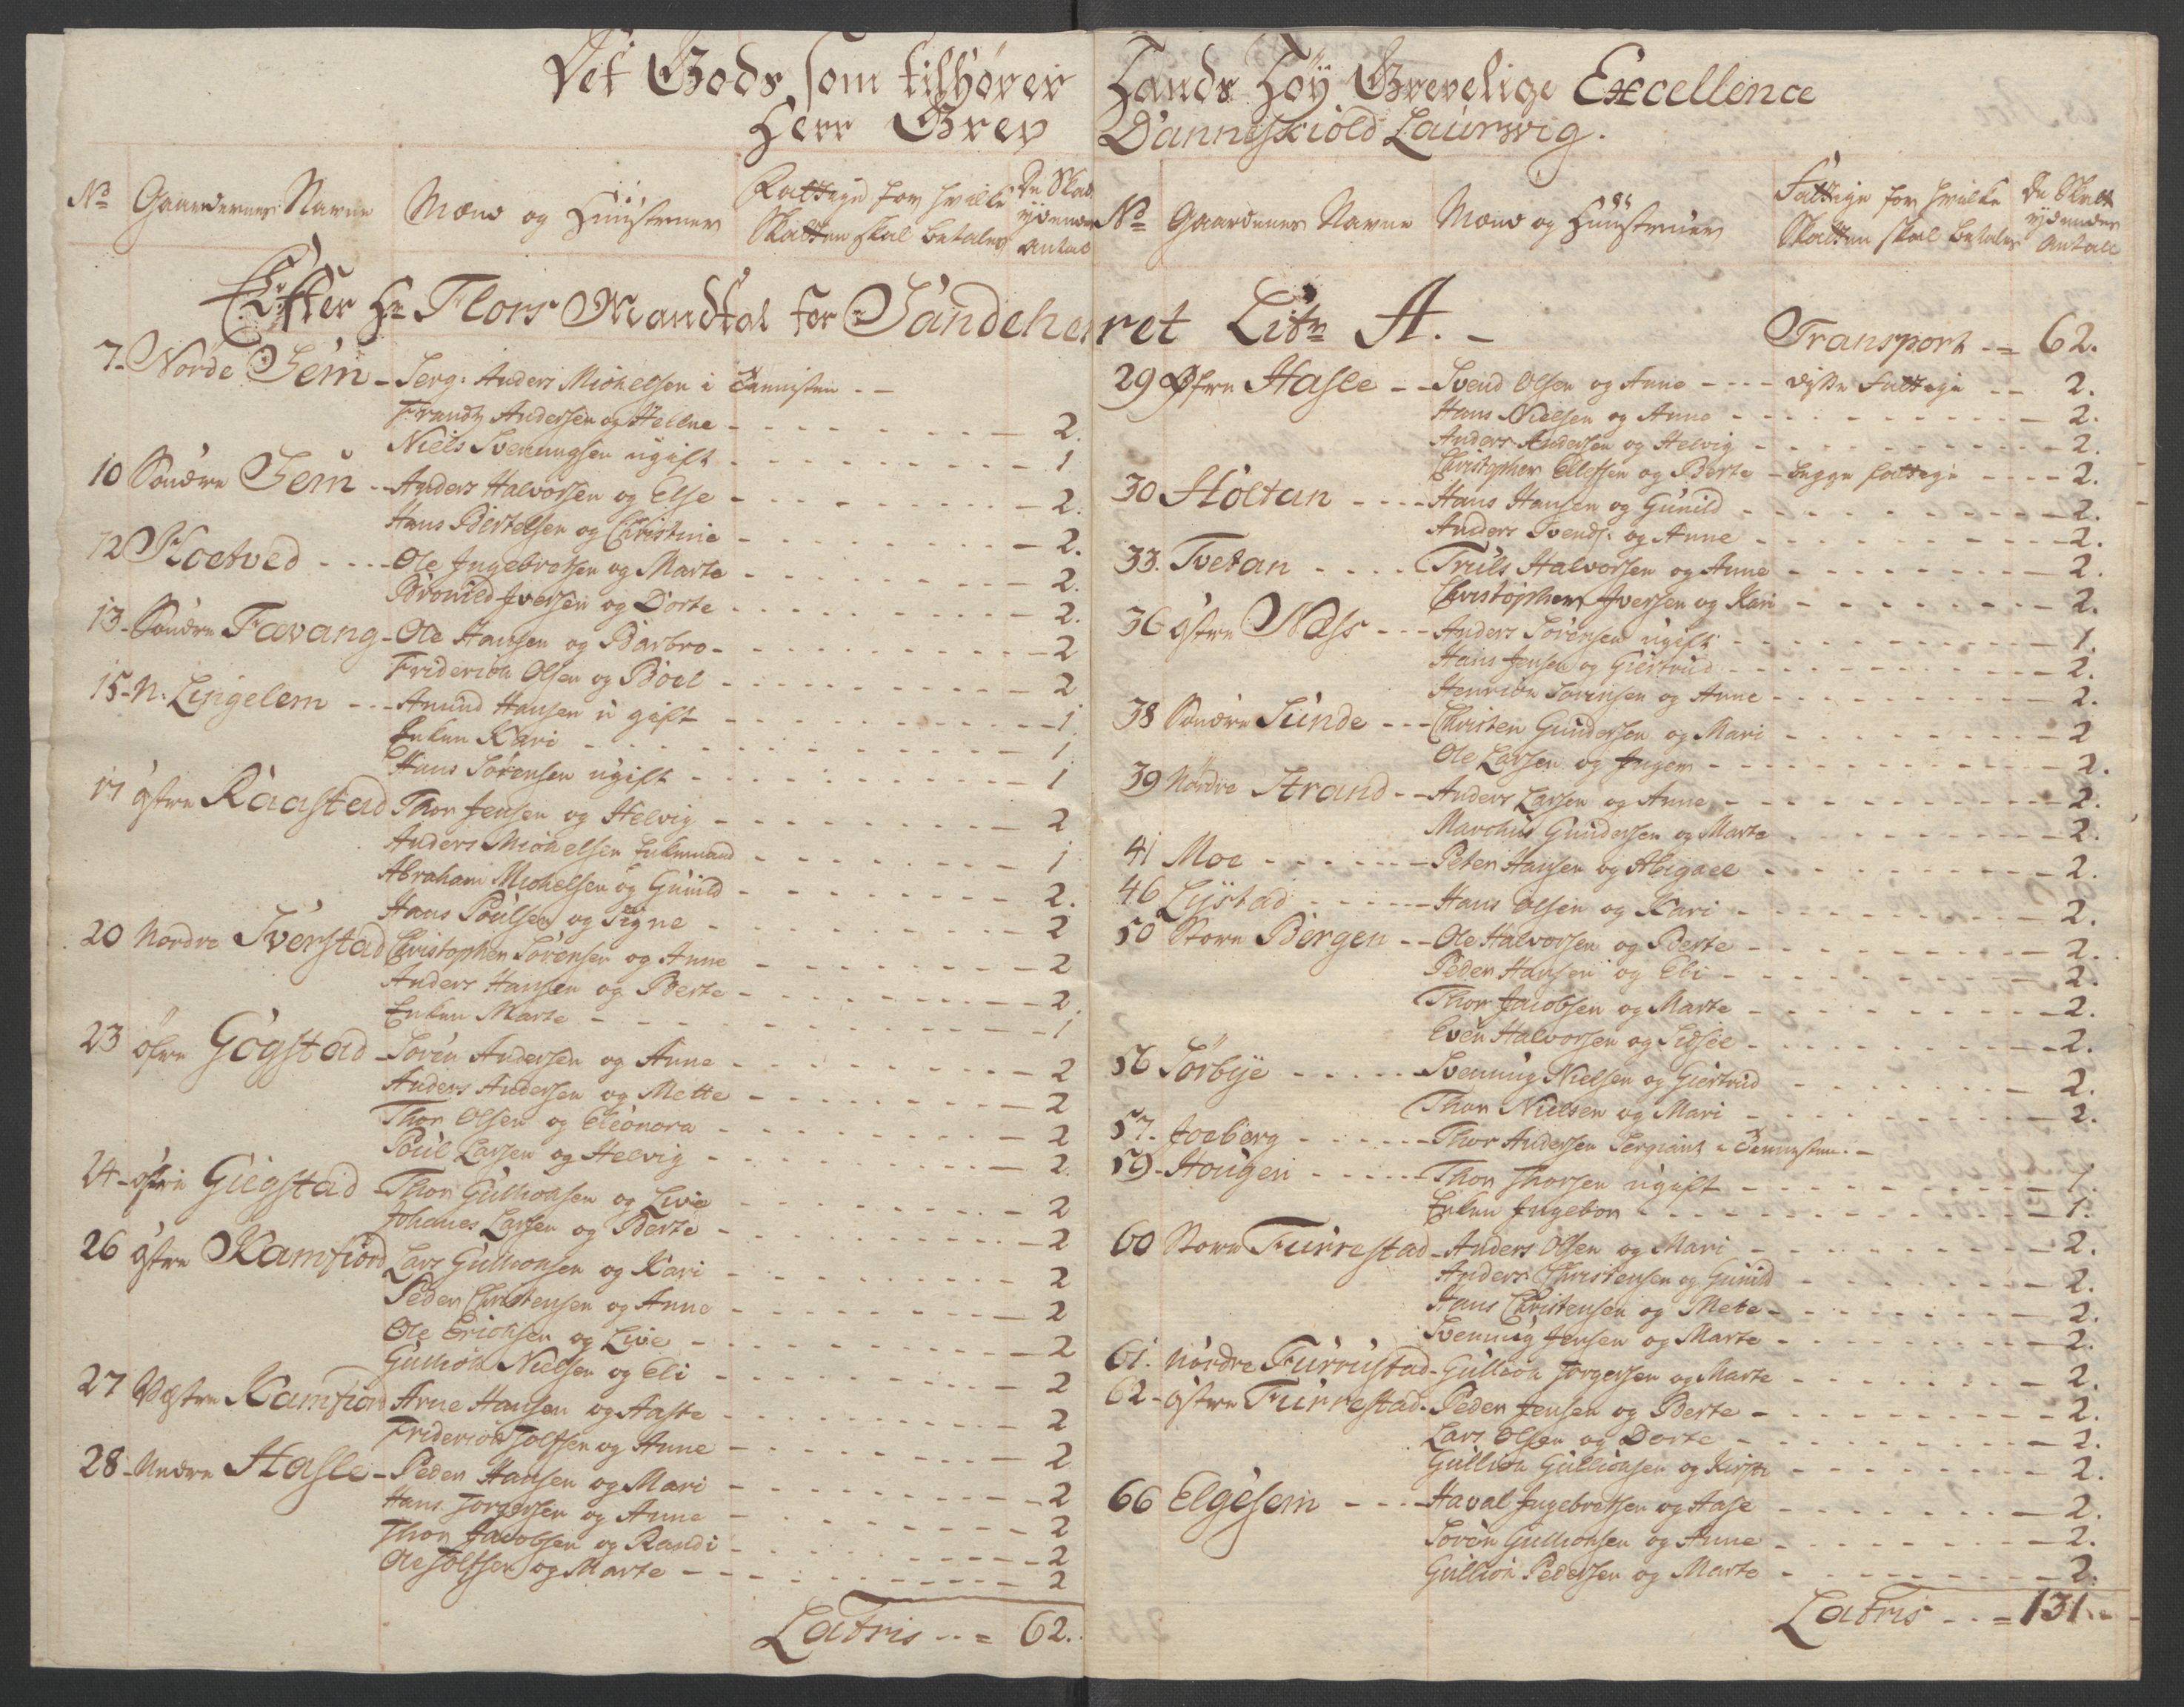 Det Gods som tilhører Hands Høy Grevelige Excellence
Herr Grev Danneskiold Laurwig.
No Gaardernes Navne Mænd og Huustruer Fattige for hvilke Skatten skal betales De Skatt ydendes Antal
Efter Hr Flors Mandtal for Sandeherret Litr A. -
7- Nordre Jem - Serg: Anders Michelsen i Tienisten - -
Frandtz Andersen og Hellne - 2.
Niels Svenungsen ugift - 1
10 Søndre Jem - Anders Halvorsen og Else - 2.
Hans Bertelsen og Christine - 2.
12 Hoetved - Ole Ingebretsen og Marte - 2.
Bronild Iversen og Dorte - 2.
13- Søndre Favang - Ole Hansen og Barbro - 2
Friderich Olsen og Boel - 2
15- N: Lingelem - Amund Hansen ugift - 1
Enken Kari - 1
Hans Sørensen ugift - 1
17 østre Raastad Thor Jensen og Helvig - 2
Anders Michelsen Enkemand - 1
Abraham Michelsen og Gunild - 2.
Hans Poulsen og Signe - 2
20 Nordre Sverstad Christopher Sørensen og Anne - 2
Anders Hansen og Berte - 2
Enken Marte - 1
23 øfre Gogstad - Søren Andersen og Anne - 2
Anders Andersen og Mette - 2
Thor Olsen og Eleonora - 2
Poul Larsen og Helvig - 2.
24- østre Giegstad - Thor Gullichsen og Live - 2
Johanes Larsen og Berte - 2
26 østre Kamfiord Lars Gullichsen og Kari - 2
Peder Christensen og Anne - 2
Ole Erichsen og Live - 2
Gullich Nielsen og Eli - 2
27 Vestre Kamfiord Arne Hansen og Aaste - 2
Friderich Tolfsen og Anne - 2
28- Nedre Hasle - Peder Hansen og Mari - 2
Hans Jorgersen og Anne - 2
Thor Jacobsen og Randi - 2
Ole Tolfsen og Marte - 2
Latris - - = 62.
No Gaardenes Navne Mænd og Huustruer Fattige for hvilke Skatten skal betales De Skatt ydendes Antall
Transport - = 62.
29 Øfre Hasle - - Svend Olsen og Anne - - - - disse Fattige - - 2.
Hans Nielsen og Anne - 2.
Anders Andersen og Helvig - 2.
Christopher Ellefsen og Berte - begge fattige - - - - 2.
30 Holtan - - - - Hans Hansen og Gunild - 2.
Anders Svends: og Anne - 2.
33. Tvetan - - - - Truls Halvorsen og Anne - 2.
Christopher Iversen og Kari - 2.
36 østre Næss - - - Anders Sørensen ugift - 1.
Hans Jensen og Giertrud - 2.
Henrich Sørensen og Anne - 2.
38 Søndre Sunde - - - Christen Gundersen og Mari - 2
Ole Larsen og Inger - 2.
39 Nordre Strand - - Anders Larsen og Anne - 2.
Marchus Gundersen og Marte - 2.
41 Moe - - - - - - Peter Hansen og Abigael - 2.
46 Lystad - - - - - Hans Olsen og Kari - 2.
50 Store Bergen - - Ole Halvorsen og Berte - 2.
Peder Hansen og Eli - 2.
Thor Jacobsen og Marte - 2.
Even Halvorsen og Sidsel - 2.
56 Sørbye - - - - - Svenning Nielsen og Giertrud - 2.
Thor Nielsen og Mari - 2.
57- Joeberg - - - - - Thor Andersen Sergiant i Tienesten. -
59- Hougen - - - - - Thor Thorsen ugift - 1.
Enken Ingebor - 1.
60 Store Furrestad - Anders Olsen og Mari - 2.
Anders Christensen og Gunild - 2.
Hans Christensen og Mete - 2.
Svennig Jensen og Marte - 2.
61. Nordre Furrustad - Gullich Jorgersen og Marte - 2.
62- østre Furrestad - Peder Jensen og Berte - 2.
Lars Olsen og Dorte - 2.
Gullich Gullichsen og Kirsti - 2.
66 Elgesem - - - - Haval Ingebretsen og Aase - 2.
Søren Gullichsen og Anne - 2.
Gullich Pedersen og Marte - 2.
Latris - - = 131.